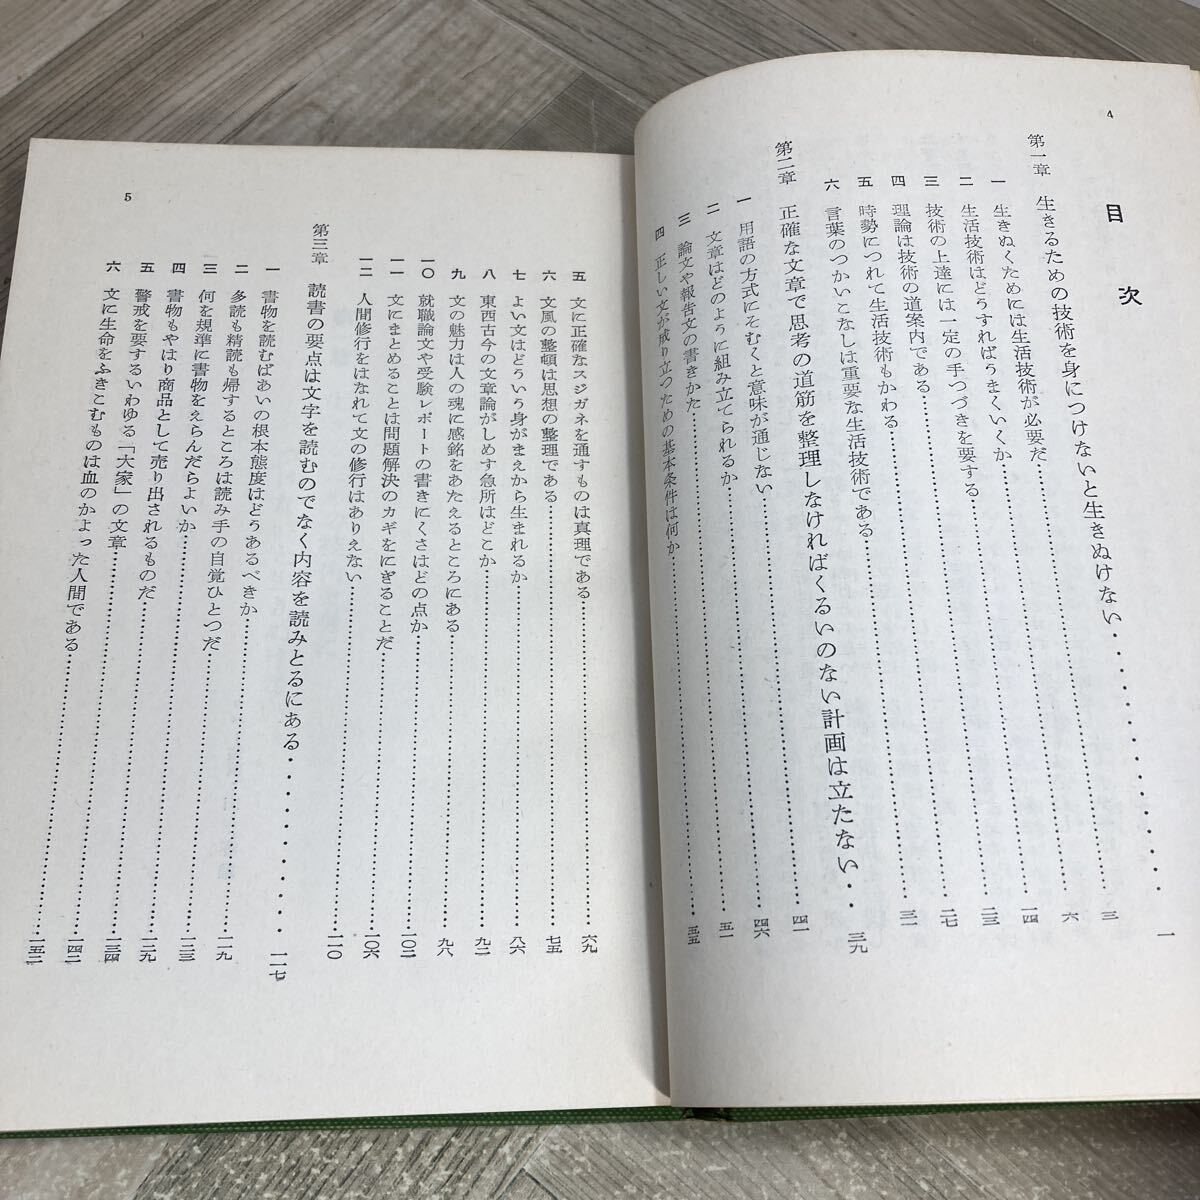 4
目次
第一章 生きるための技術を身につけないと生きぬけない………一
一 生きぬくためには生活技術が必要だ………三
二 生活技術はどうすればうまくいくか………六
三 技術の上達には一定の手つづきを要する………一四
四 理論は技術の道案内である………二三
五 時勢につれて生活技術もかわる………二七
六 言葉のつかいこなしは重要な生活技術である………三一
第二章 正確な文章で思考の道筋を整理しなければくるいのない計画は立たない‥三九
一 用語の方式にそむくと意味が通じない………四一
二 文章はどのように組み立てられるか………四六
三 論文や報告文の書きかた………五一
四 正しい文が成り立つための基本条件は何か………五五
五 文に正確なスジガネを通すものは真理である………六九
六 文風の整頓は思想の整理である………七五
七 よい文はどういう身がまえから生まれるか………八六
八 東西古今の文章論がしめす急所はどこか………九二
九 文の魅力は人の魂に感銘をあたえるところにある………九八
一〇 就職論文や受験レポートの書きにくさはどの点か………一〇二
一一 文にまとめることは問題解決のカギをにぎることだ………一〇六
一二 人間修行をはなれて文の修行はありえない………一一〇
第三章 読書の要点は文字を読むのでなく内容を読みとるにある………一一七
一 書物を読むばあいの根本態度はどうあるべきか………一一九
二 多読も精読も帰するところは読み手の自覚ひとつだ………一二三
三 何を規準に書物をえらんだらよいか………一二九
四 書物もやはり商品として売り出されるものだ………一三四
五 警戒を要するいわゆる「大家」の文章………一四二
六 文に生命をふきこむものは血のかよった人間である………一五二
5